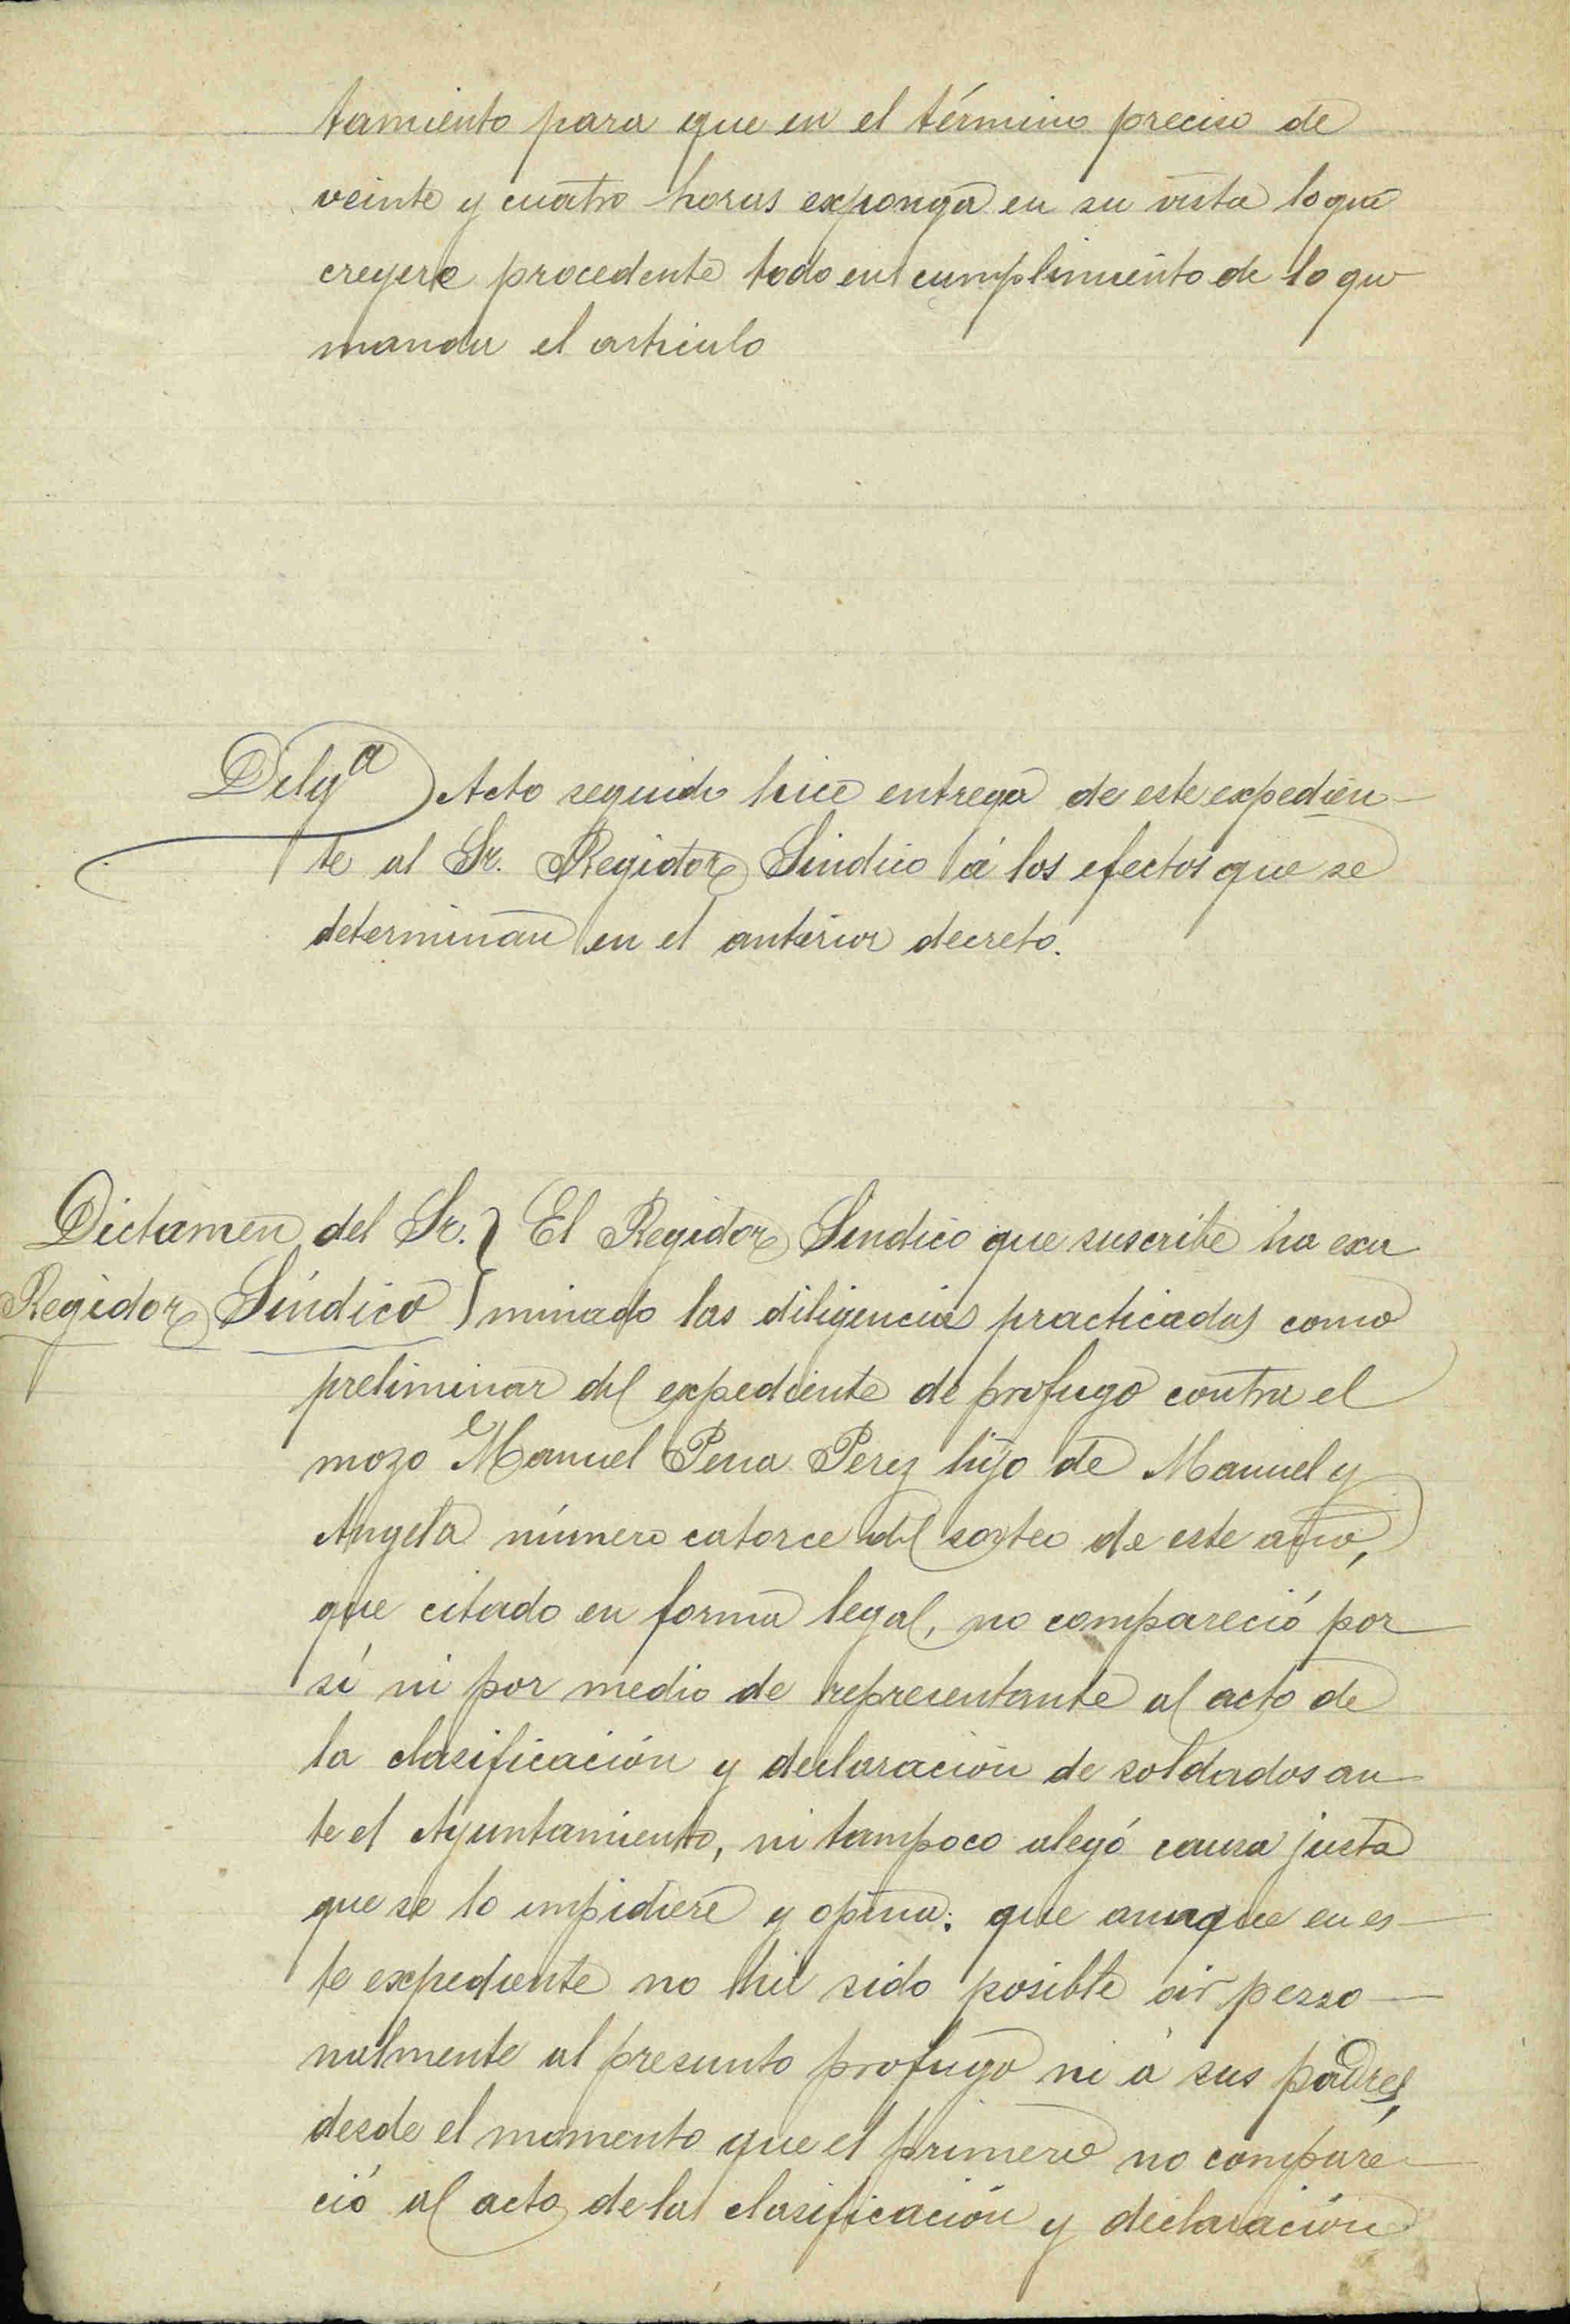 tamiento para que en el término preciso de
veinte y cuatro horas exponga en su vista lo que
creyere procedente todo en cumplimiento de lo que
manda el artículo
Delgª Acto seguido hice entrega de este expedien-
te al Sr. Regidor Sindico á los efectos que se
determinan en el anterior decreto.
Dictamen del Sr. } El Regidor Sindico que suscribe ha exa
Regidor Síndico } minado las diligencias practicadas como
preliminar del expediente de profugo contra el
mozo Manuel Pena Perez hijo de Manuel y
Angela número catorce del sorteo de este año,
que citado en forma legal, no compareció por
sí ni por medio de representante al acto de
la clasificación y declaración de soldados an
te el Ayuntamiento, ni tampoco alegó causa justa
que se lo impidiere y opina: que aunque en es-
te expediente no ha sido posible oir perso-
nalmente al presunto profugo ni á sus padres,
desde el momento que el primero no compare-
ció al acto de la clasificación y declaración